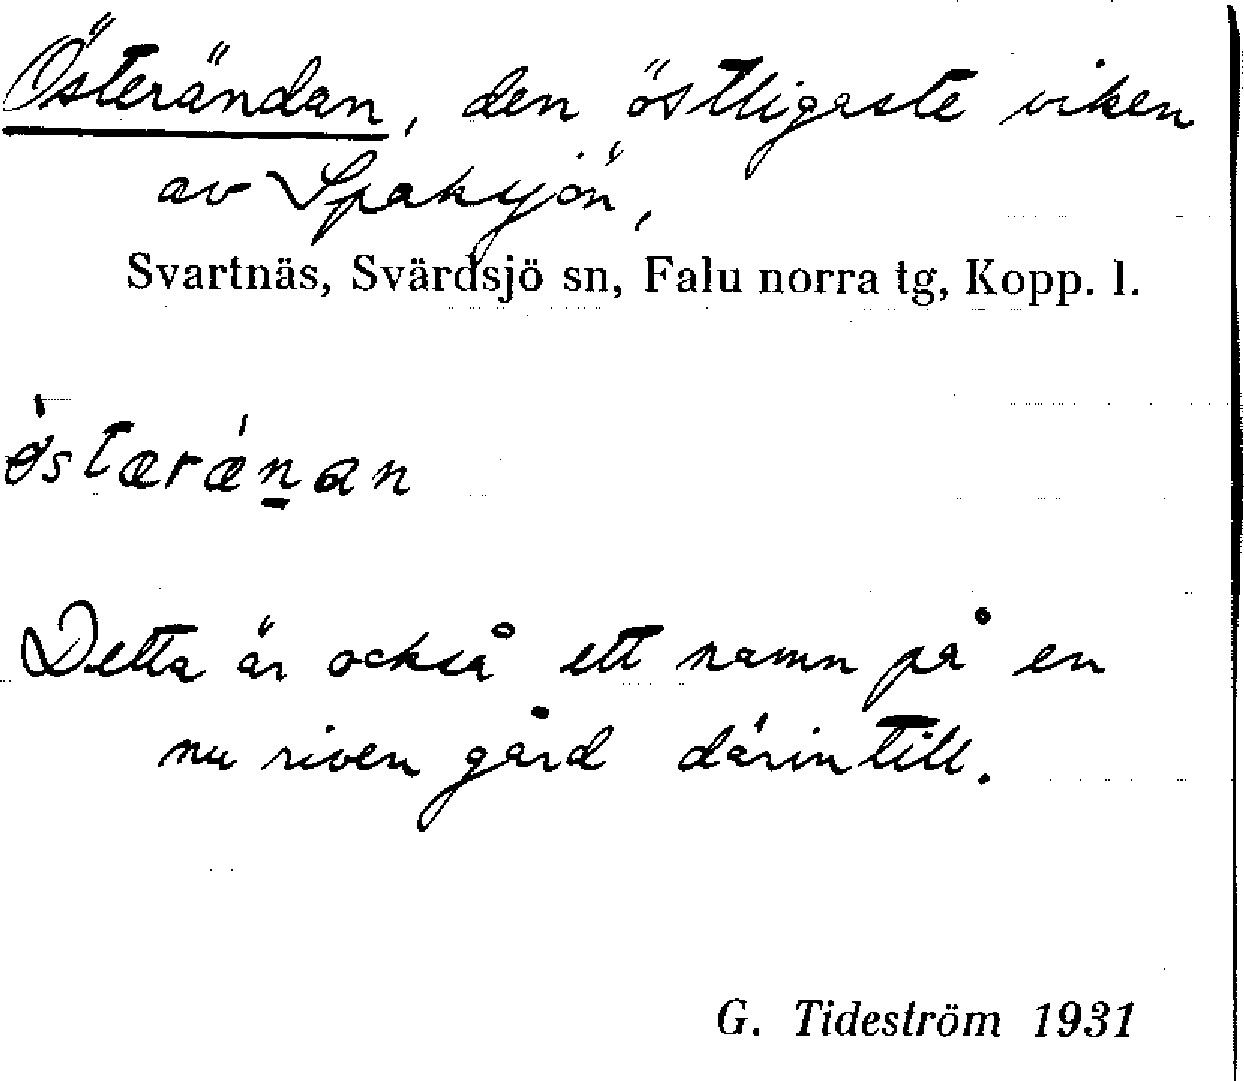 Österändan, den östligaste viken
av Spaksjön,
Svartnäs, Svärdsjö sn, Falu norra tg, Kopp. l.
ǿstæræ´n̲an
Detta är också ett namn på en
nu riven gård därintill.
G. Tideström 1931